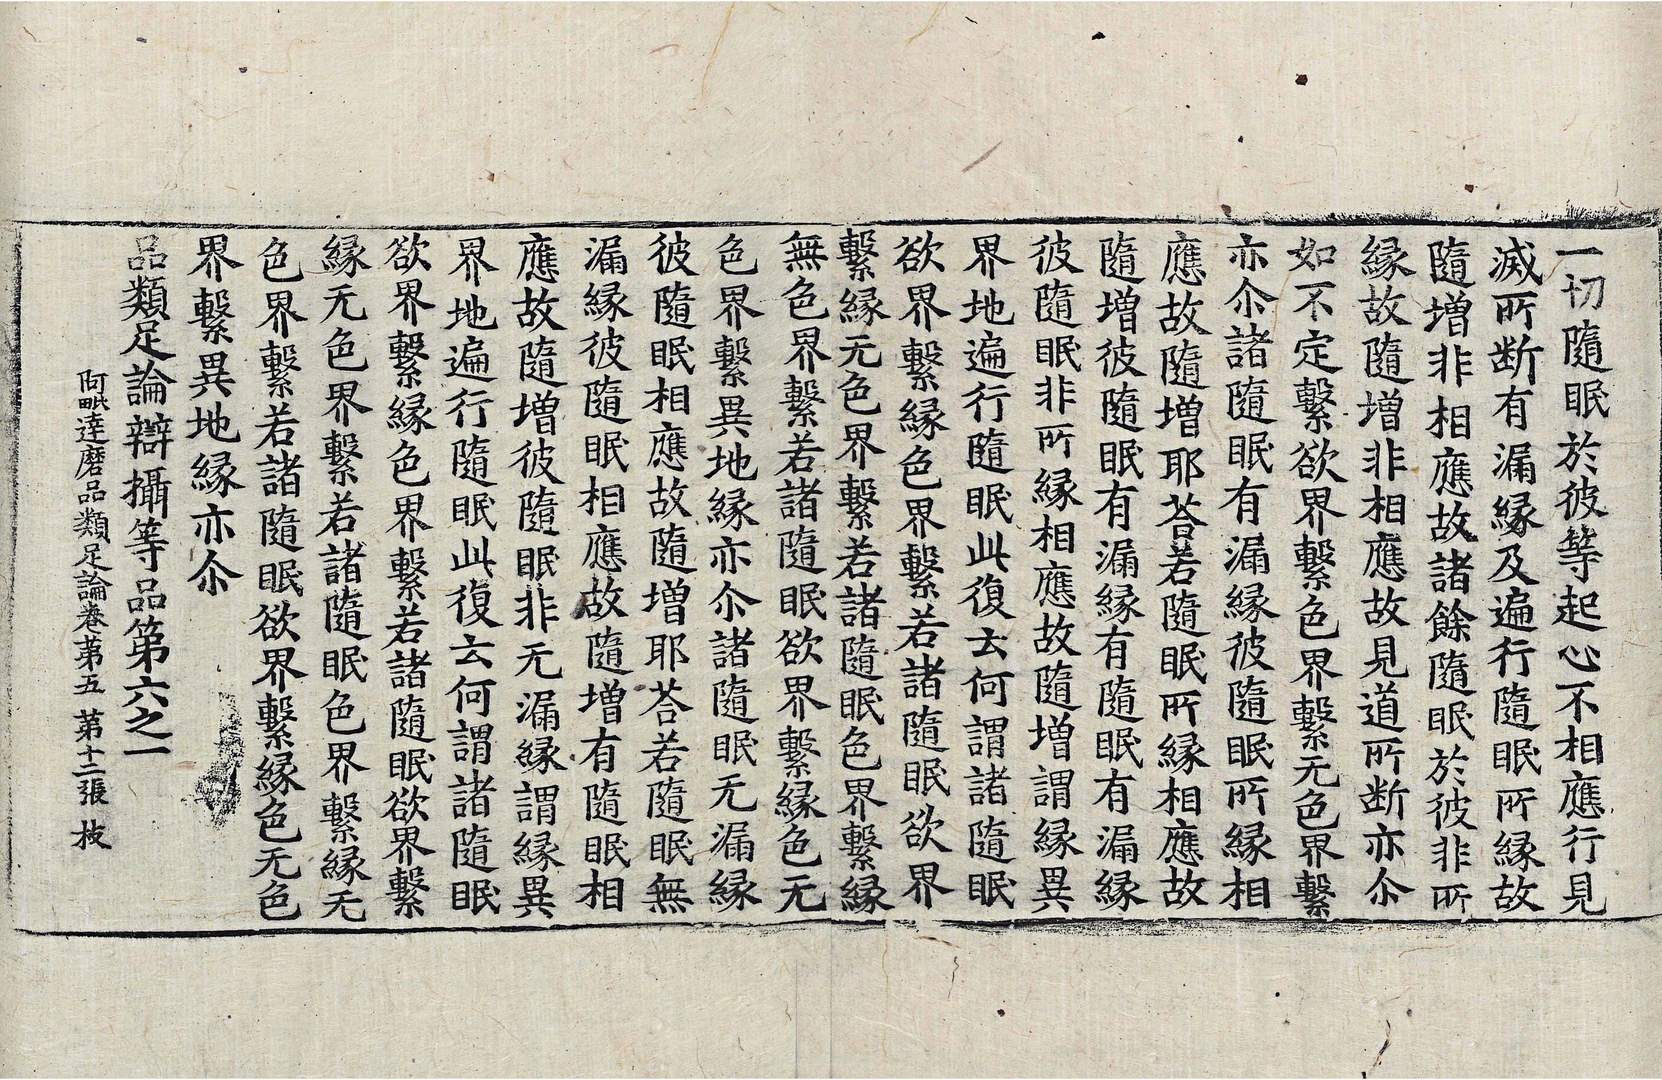 一切隨眠於彼等起心不相應行見
滅所断有漏縁及遍行隨眠所縁故
隨增非相應故諸餘隨眠於彼非所
縁故隨增非相應故見道所断亦尒
如不定繫欲界繫色界繫无色界繫
亦尒諸隨眠有漏縁彼隨眠所縁相
應故隨增耶荅若隨眠所縁相應故
隨增彼隨眠有漏縁有隨眠有漏縁
彼隨眠非所縁相應故隨增謂縁異
界地遍行隨眠此復云何謂諸隨眠
欲界繫縁色界繫若諸隨眠欲界
繫縁无色界繫若諸隨眠色界繫縁
無色界繫若諸隨眠欲界繫縁色无
色界繫異地縁亦尒諸隨眠无漏縁
彼隨眠相應故隨增耶荅若隨眠無
漏縁彼隨眠相應故隨增有隨眠相
應故隨增彼隨眠非无漏縁謂縁異
界地遍行隨眠此復云何謂諸隨眠
欲界繫縁色界繫若諸隨眠欲界繫
縁无色界繫若諸隨眠色界繫縁无
色界繫若諸隨眠欲界繫縁色无色
界繫異地縁亦尒
品類足論辯攝等品第六之一
阿毗達磨品類足論卷第五 第十二張 枝